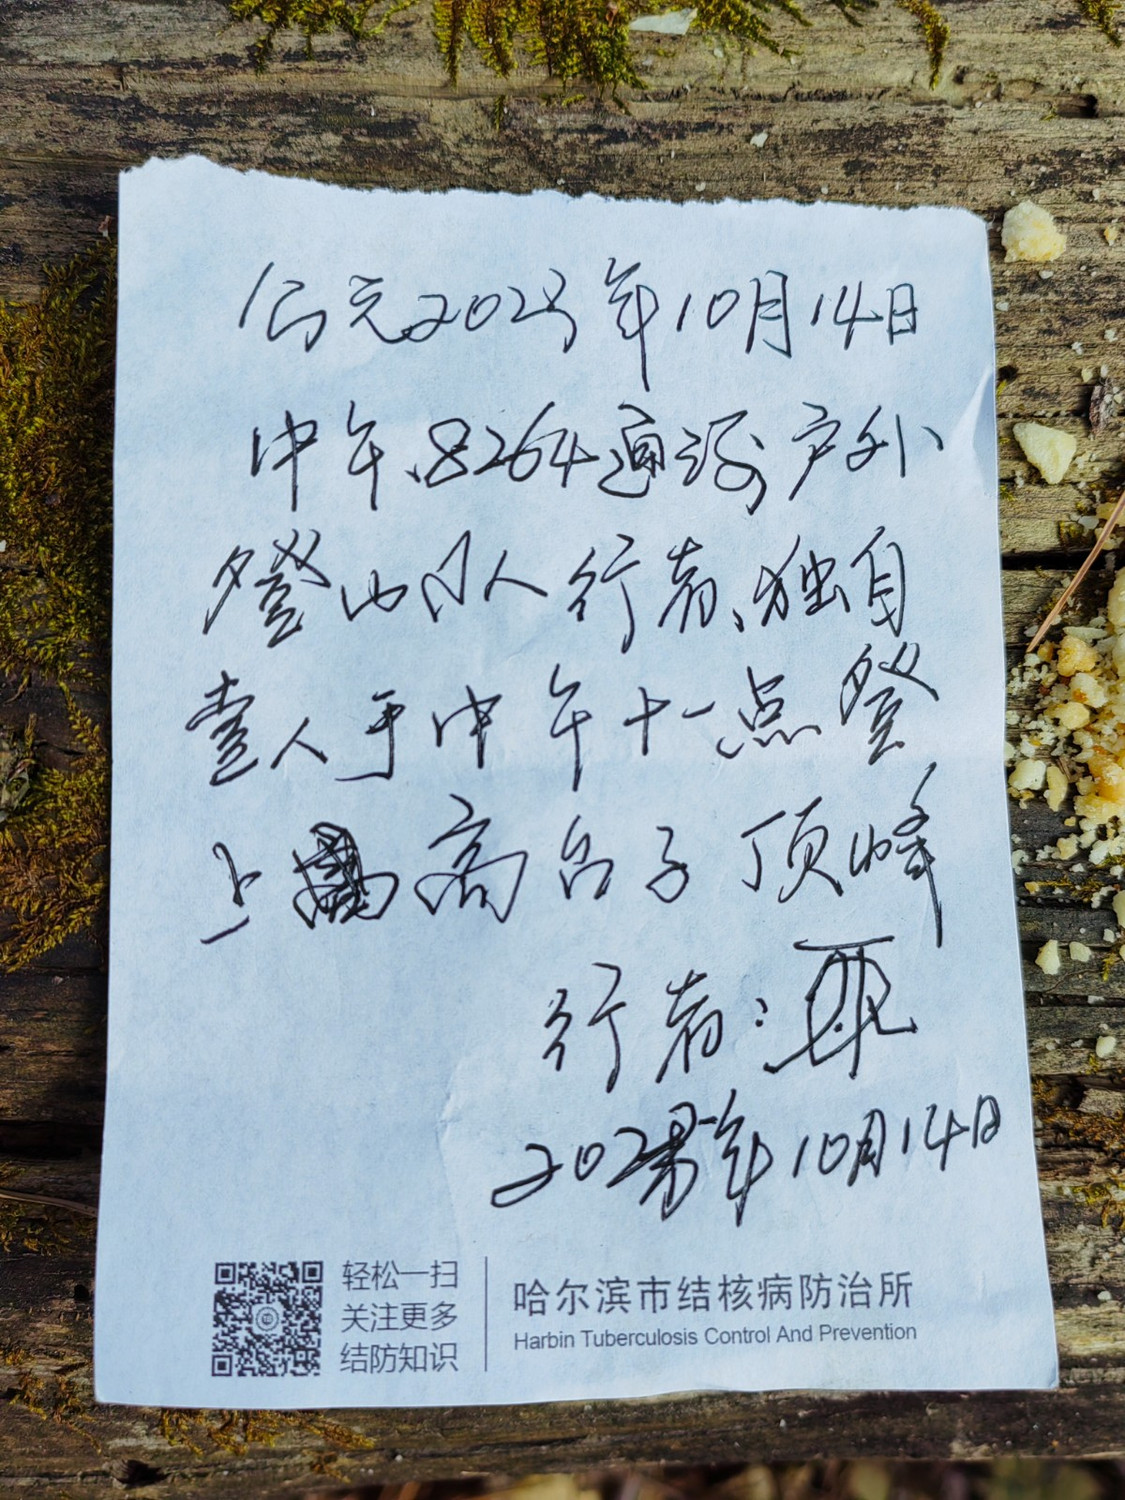 公元2023年10月14日
中午、8264通河户外
登山队人行者、独自
壹人于中午十一点登
上高台子顶峰
行者：
2023年10月14日
轻松一扫
关注更多
结防知识
哈尔滨市结核病防治所
Harbin Tuberculosis Control And Prevention